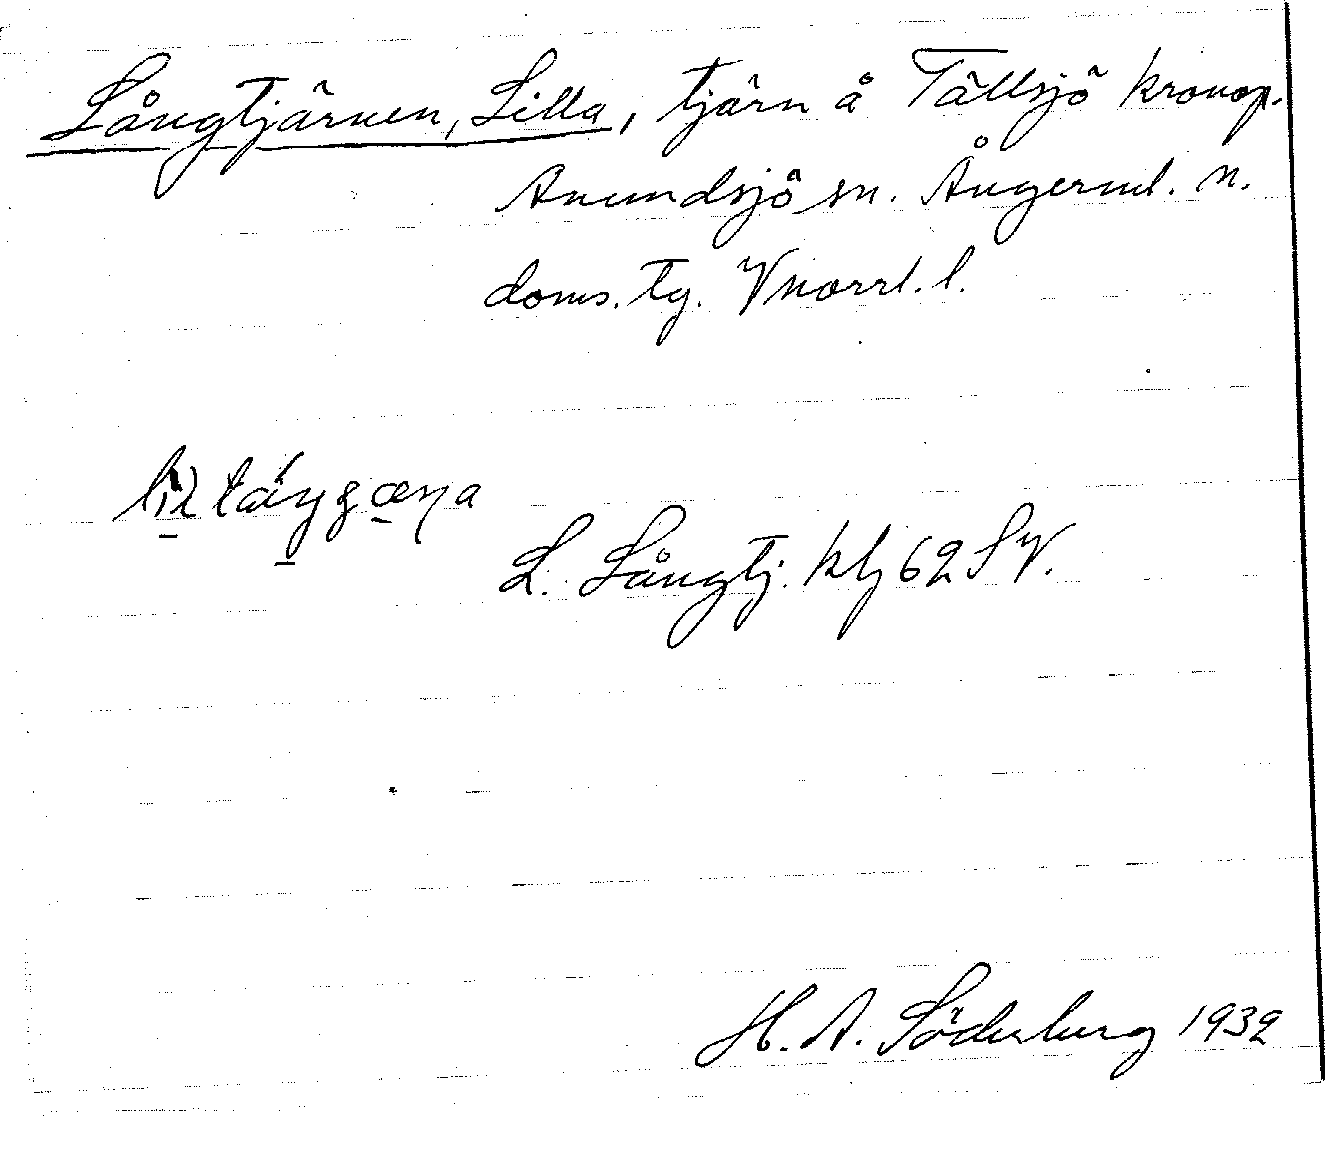 Långtjärnen, Lilla, tjärn å Tällsjö kronop.
Anundsjö sn. Ångerml. n.
doms. tg. Vnorrl. l.
L. Långtj. kbj 62 SV.
H. A. Söderberg 1932